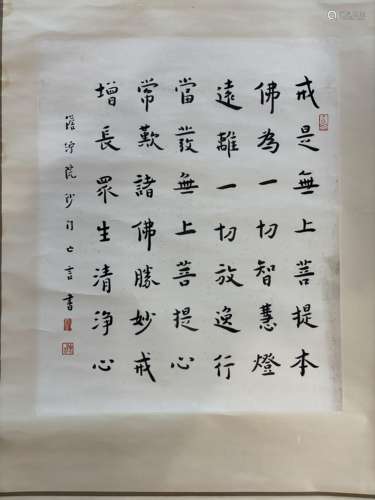 戒是無上菩提本
佛為一切智慧燈
遠離一切放逸行
當發無上菩提心
常歎諸佛勝妙戒
增長眾生清淨心
院沙門亡言書